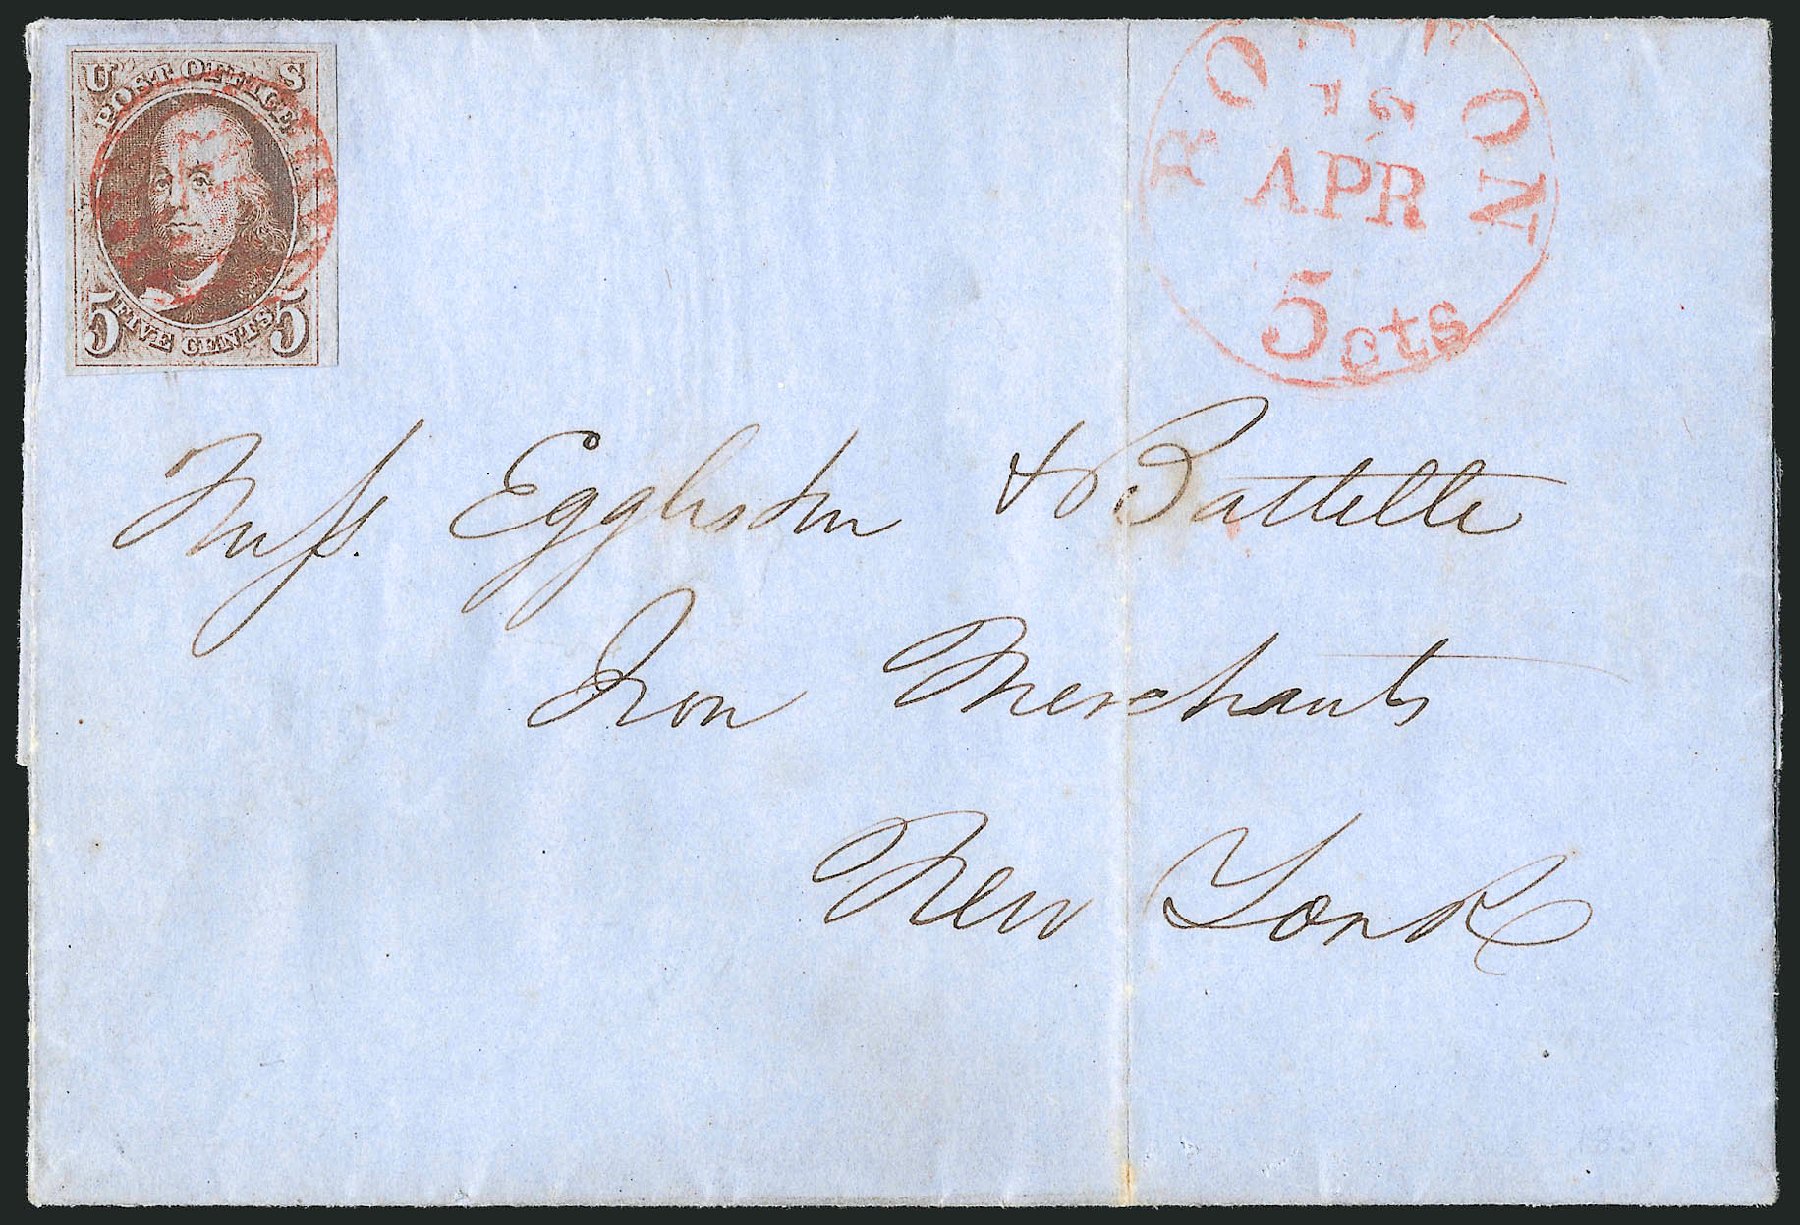 U S
POST OFFICE
5 FIVE CENTS 5
BOSTON
APR
5cts
Mess. Eggleston & Battelle
Iron Merchants
New York